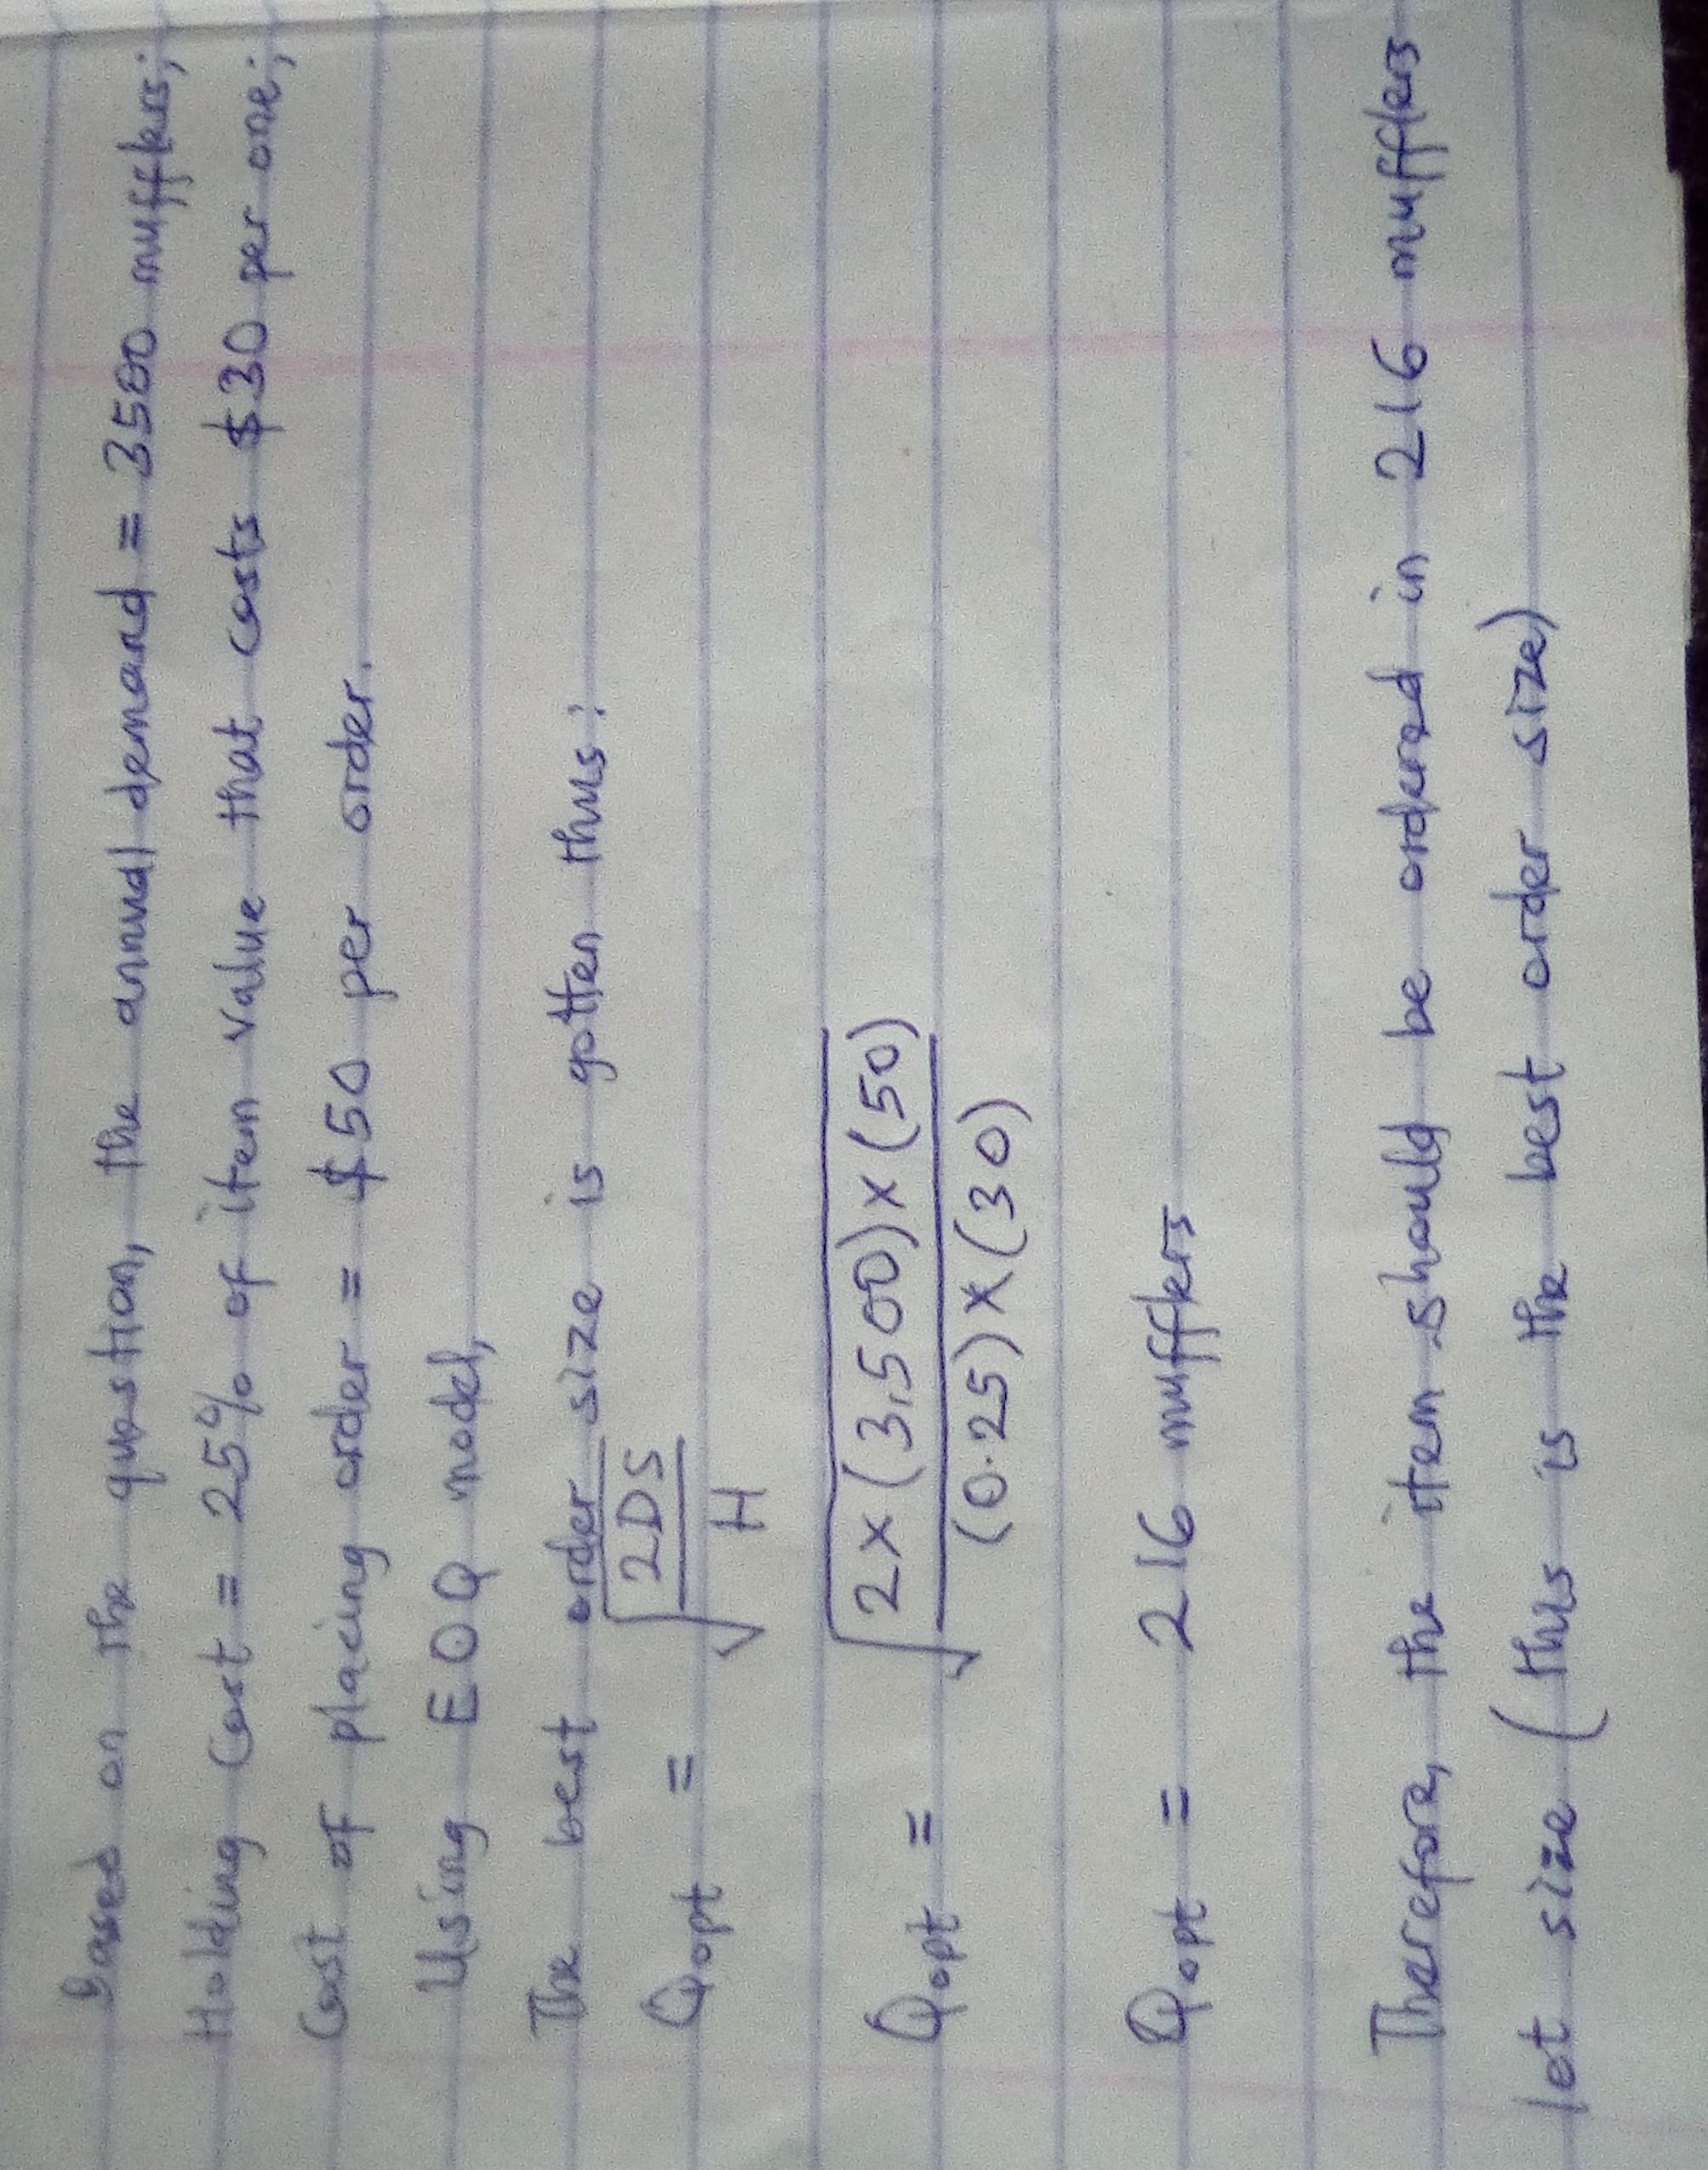 based on the question, the annual demand = 3500 mufflers;
Holding Cost = 25% of item value that costs $30 per one;
Cost of placing order = $50 per order.
Using EOQ model,
The best order size is gotten thus:
Qopt = √2DS/H
Qopt = √2×(3,500)×(50)/(0.25)×(30)
Qopt = 216 mufflers
Therefore, the item should be ordered in 216 mufflers
lot size (this is the best order size)